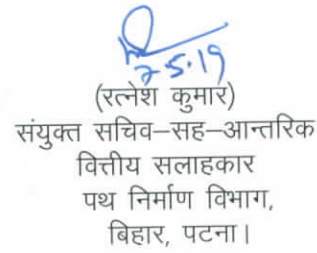 2-5-19
(रत्नेश कुमार)
संयुक्त सचिव-सह-आन्तरिक
वित्तीय सलाहकार
पथ निर्माण विभाग,
बिहार, पटना।